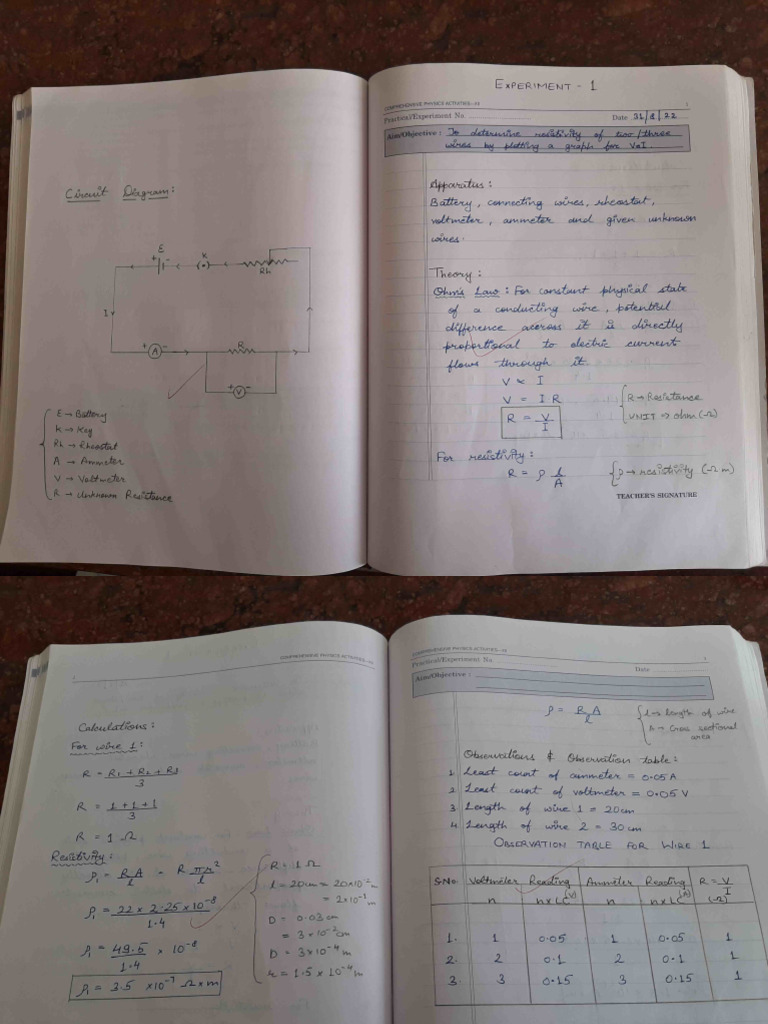 EXPERIMENT - 1
COMPREHENSIVE PHYSICS ACTIVITIES-XII
1
Practical/Experiment No.
Date 31/8/22
Aim/Objective : To determine resistivity of two/three
wires by plotting a graph for V v I
Circuit Diagram:
E
+ -
K
(•)
Rh
I
+ A -
R
+ V -
E → Battery
K → Key
Rh → Rheostat
A → Ammeter
V → Voltmeter
R → Unknown Resistance
Apparatus:
Battery, connecting wires, rheostat,
voltmeter, ammeter and given unknown
wires.
Theory:
Ohm's Law: For constant physical state
of a conducting wire, potential
difference across it is directly
proportional to electric current
flows through it
V ∝ I
V = I R
R = V/I
R → Resistance
UNIT ⇒ ohm (Ω)
For resistivity:
R = ρ l/A
ρ → resistivity (Ω m)
TEACHER'S SIGNATURE
COMPREHENSIVE PHYSICS ACTIVITIES-XII
Calculations:
For wire 1:
R = R1 + R2 + R3 / 3
R = 1+1+1 / 3
R = 1 Ω
Resistivity:
ρ1 = RA/l = R πr²/l
ρ1 = 22 x 2.25 x 10⁻⁸ / 1.4
ρ1 = 49.5/1.4 x 10⁻⁸
ρ1 = 3.5 x10⁻⁷ Ω x m
R = 1 Ω
l = 20cm = 20x10⁻² m
= 2x10⁻¹ m
D = 0.03 cm
= 3x10⁻² cm
D = 3x10⁻⁴ m
r = 1.5 x 10⁻⁴ m
COMPREHENSIVE PHYSICS ACTIVITIES-XII
Practical/Experiment No.
Date
Aim/Objective :
ρ = RA/l
l → length of wire
A → Cross sectional
area
Observations & Observation table:
1. Least count of ammeter = 0.05 A
2. Least count of voltmeter = 0.05 V
3. Length of wire 1 = 20 cm
4. Length of wire 2 = 30 cm
OBSERVATION TABLE FOR WIRE 1
S.No. Voltmeter Reading Ammeter Reading R = V/I
n nxLC(V) n nxLC(A) (Ω)
1. 1 0.05 1 0.05 1
2. 2 0.1 2 0.1 1
3. 3 0.15 3 0.15 1